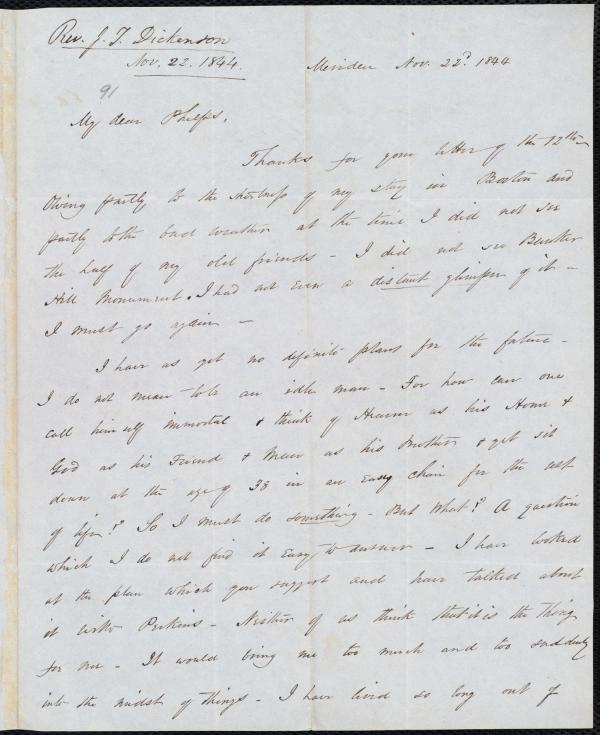 Rev. J. T. Dickenson
Nov. 22. 1844.
Meriden Nov. 22d. 1844
91
My dear Phelps,
Thanks for your letter of the 12th
Owing partly to the shortness of my stay in Boston and
partly to the bad weather at the time I did not see
the half of my old friends - I did not see Bunker
Hill Monument. I had not even a distant glimpse of it -
I must go again -
I have as yet no definite plans for the future -
I do not mean to be an idle man - For how can one
call himself immortal & think of Heaven as his Home &
God as his Friend & Man as his Brother & yet sit
down at the age of 38 in an easy chair for the rest
of life?? So I must do something - But What?? A question
which I do not find it easy to answer - I have looked
at the plan which you suggest and have talked about
it with Perkins - Neither of us think that it is the thing
for me - It would bring me too much and too suddenly
into the midst of things - I have lived so long out of